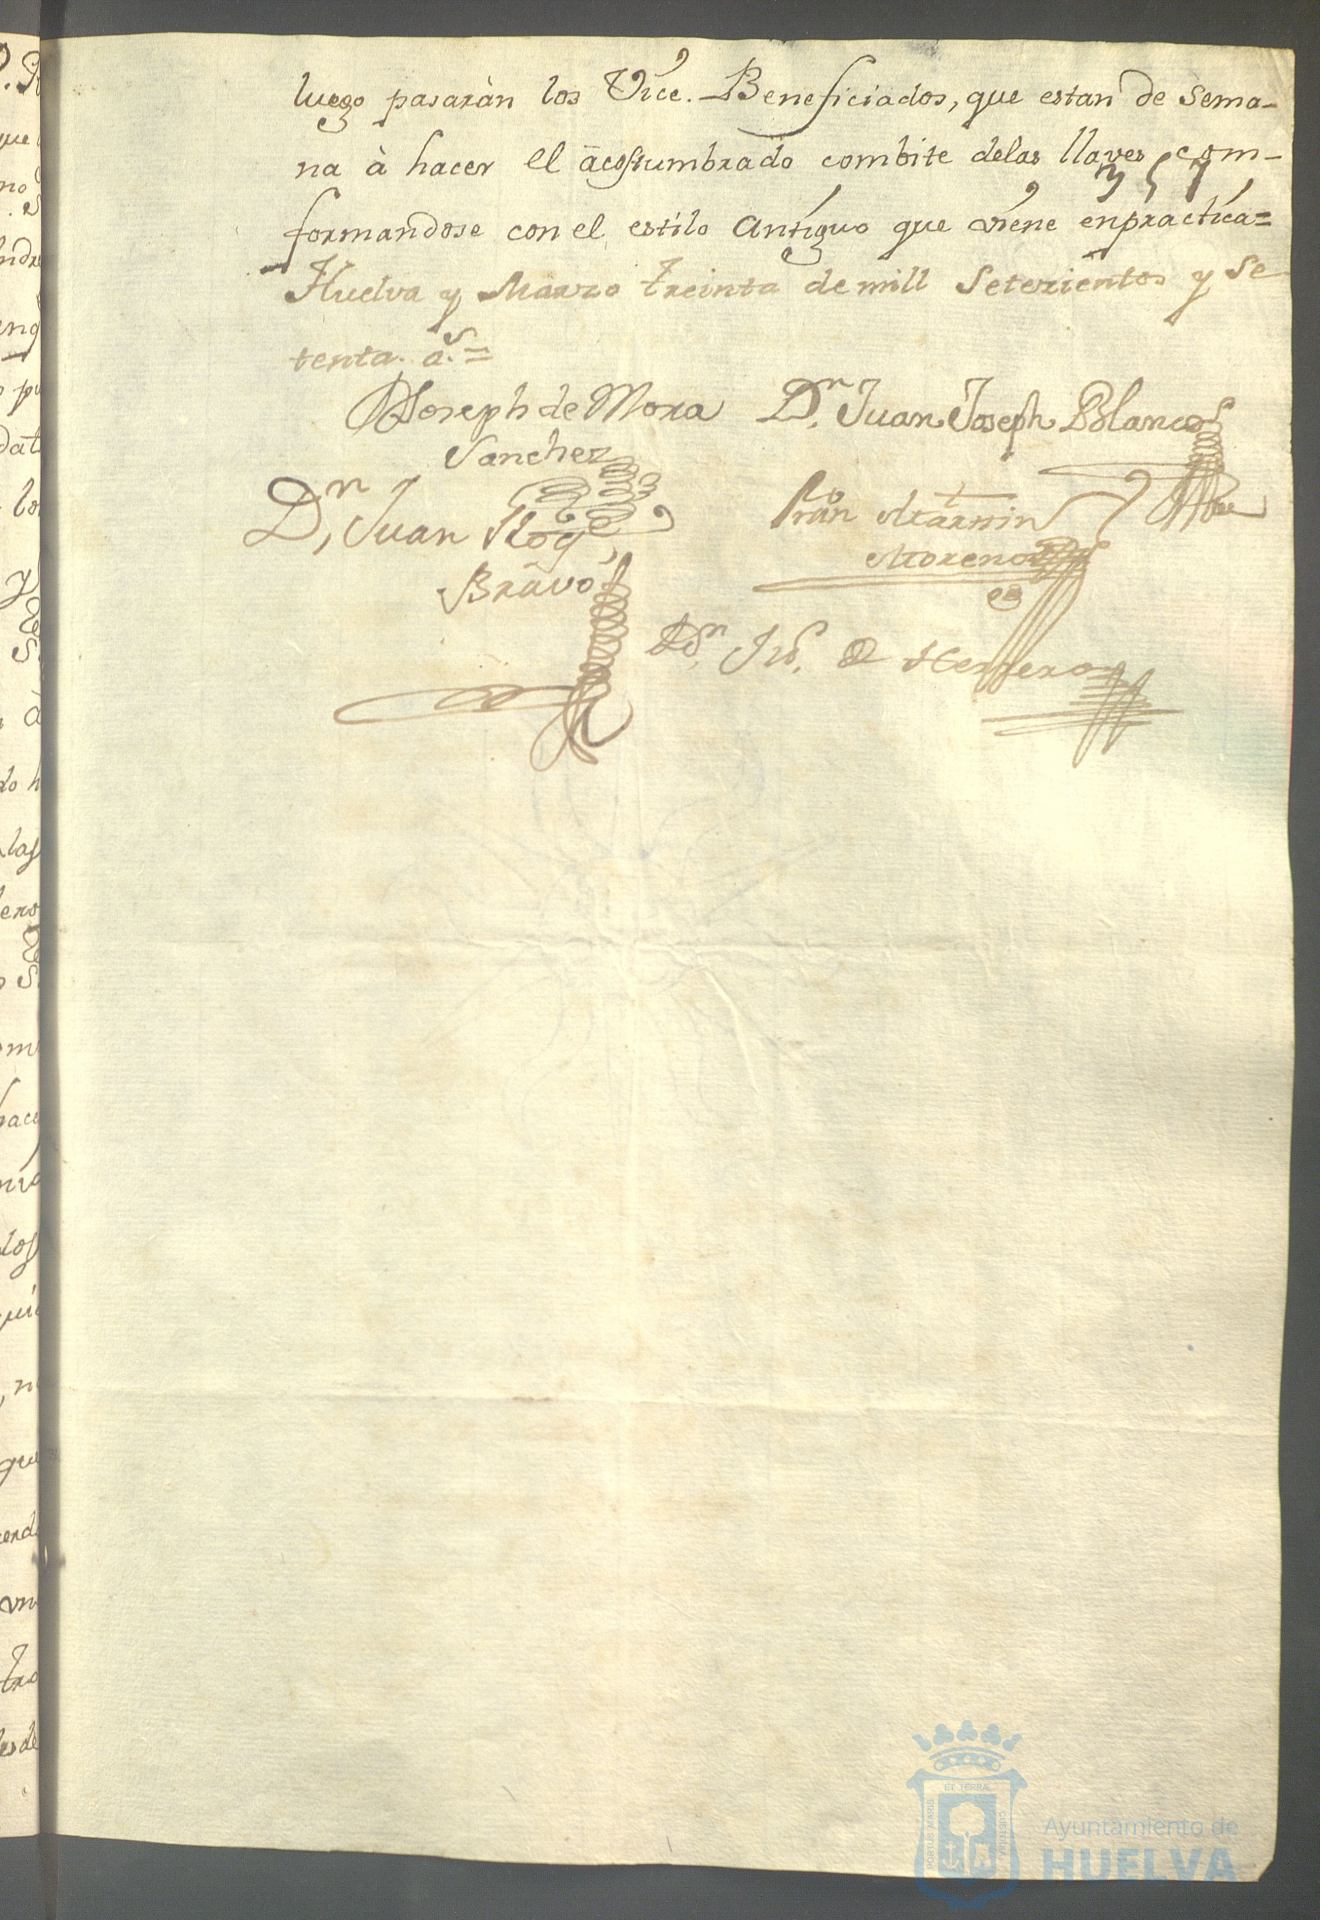 luego pasaràn los Vice. Beneficiados, que estan de Sema-
na à hacer el acostumbrado combite delas llaves com-
357
formandose con el estilo Antiguo que viene enpractica=
Huelva y Marzo treinta de mill Setezientos y se
tenta. a.s=
Joseph de Mora
Sanchez
D.n Juan Joseph Blanco
D.n Juan Roq.e
Bravo
Fran.co Martin
Moreno
D.n Ju.o de Herrero
ET TERRAE
PORTUS MARIS
CUSTODIA
Ayuntamiento de
HUELVA